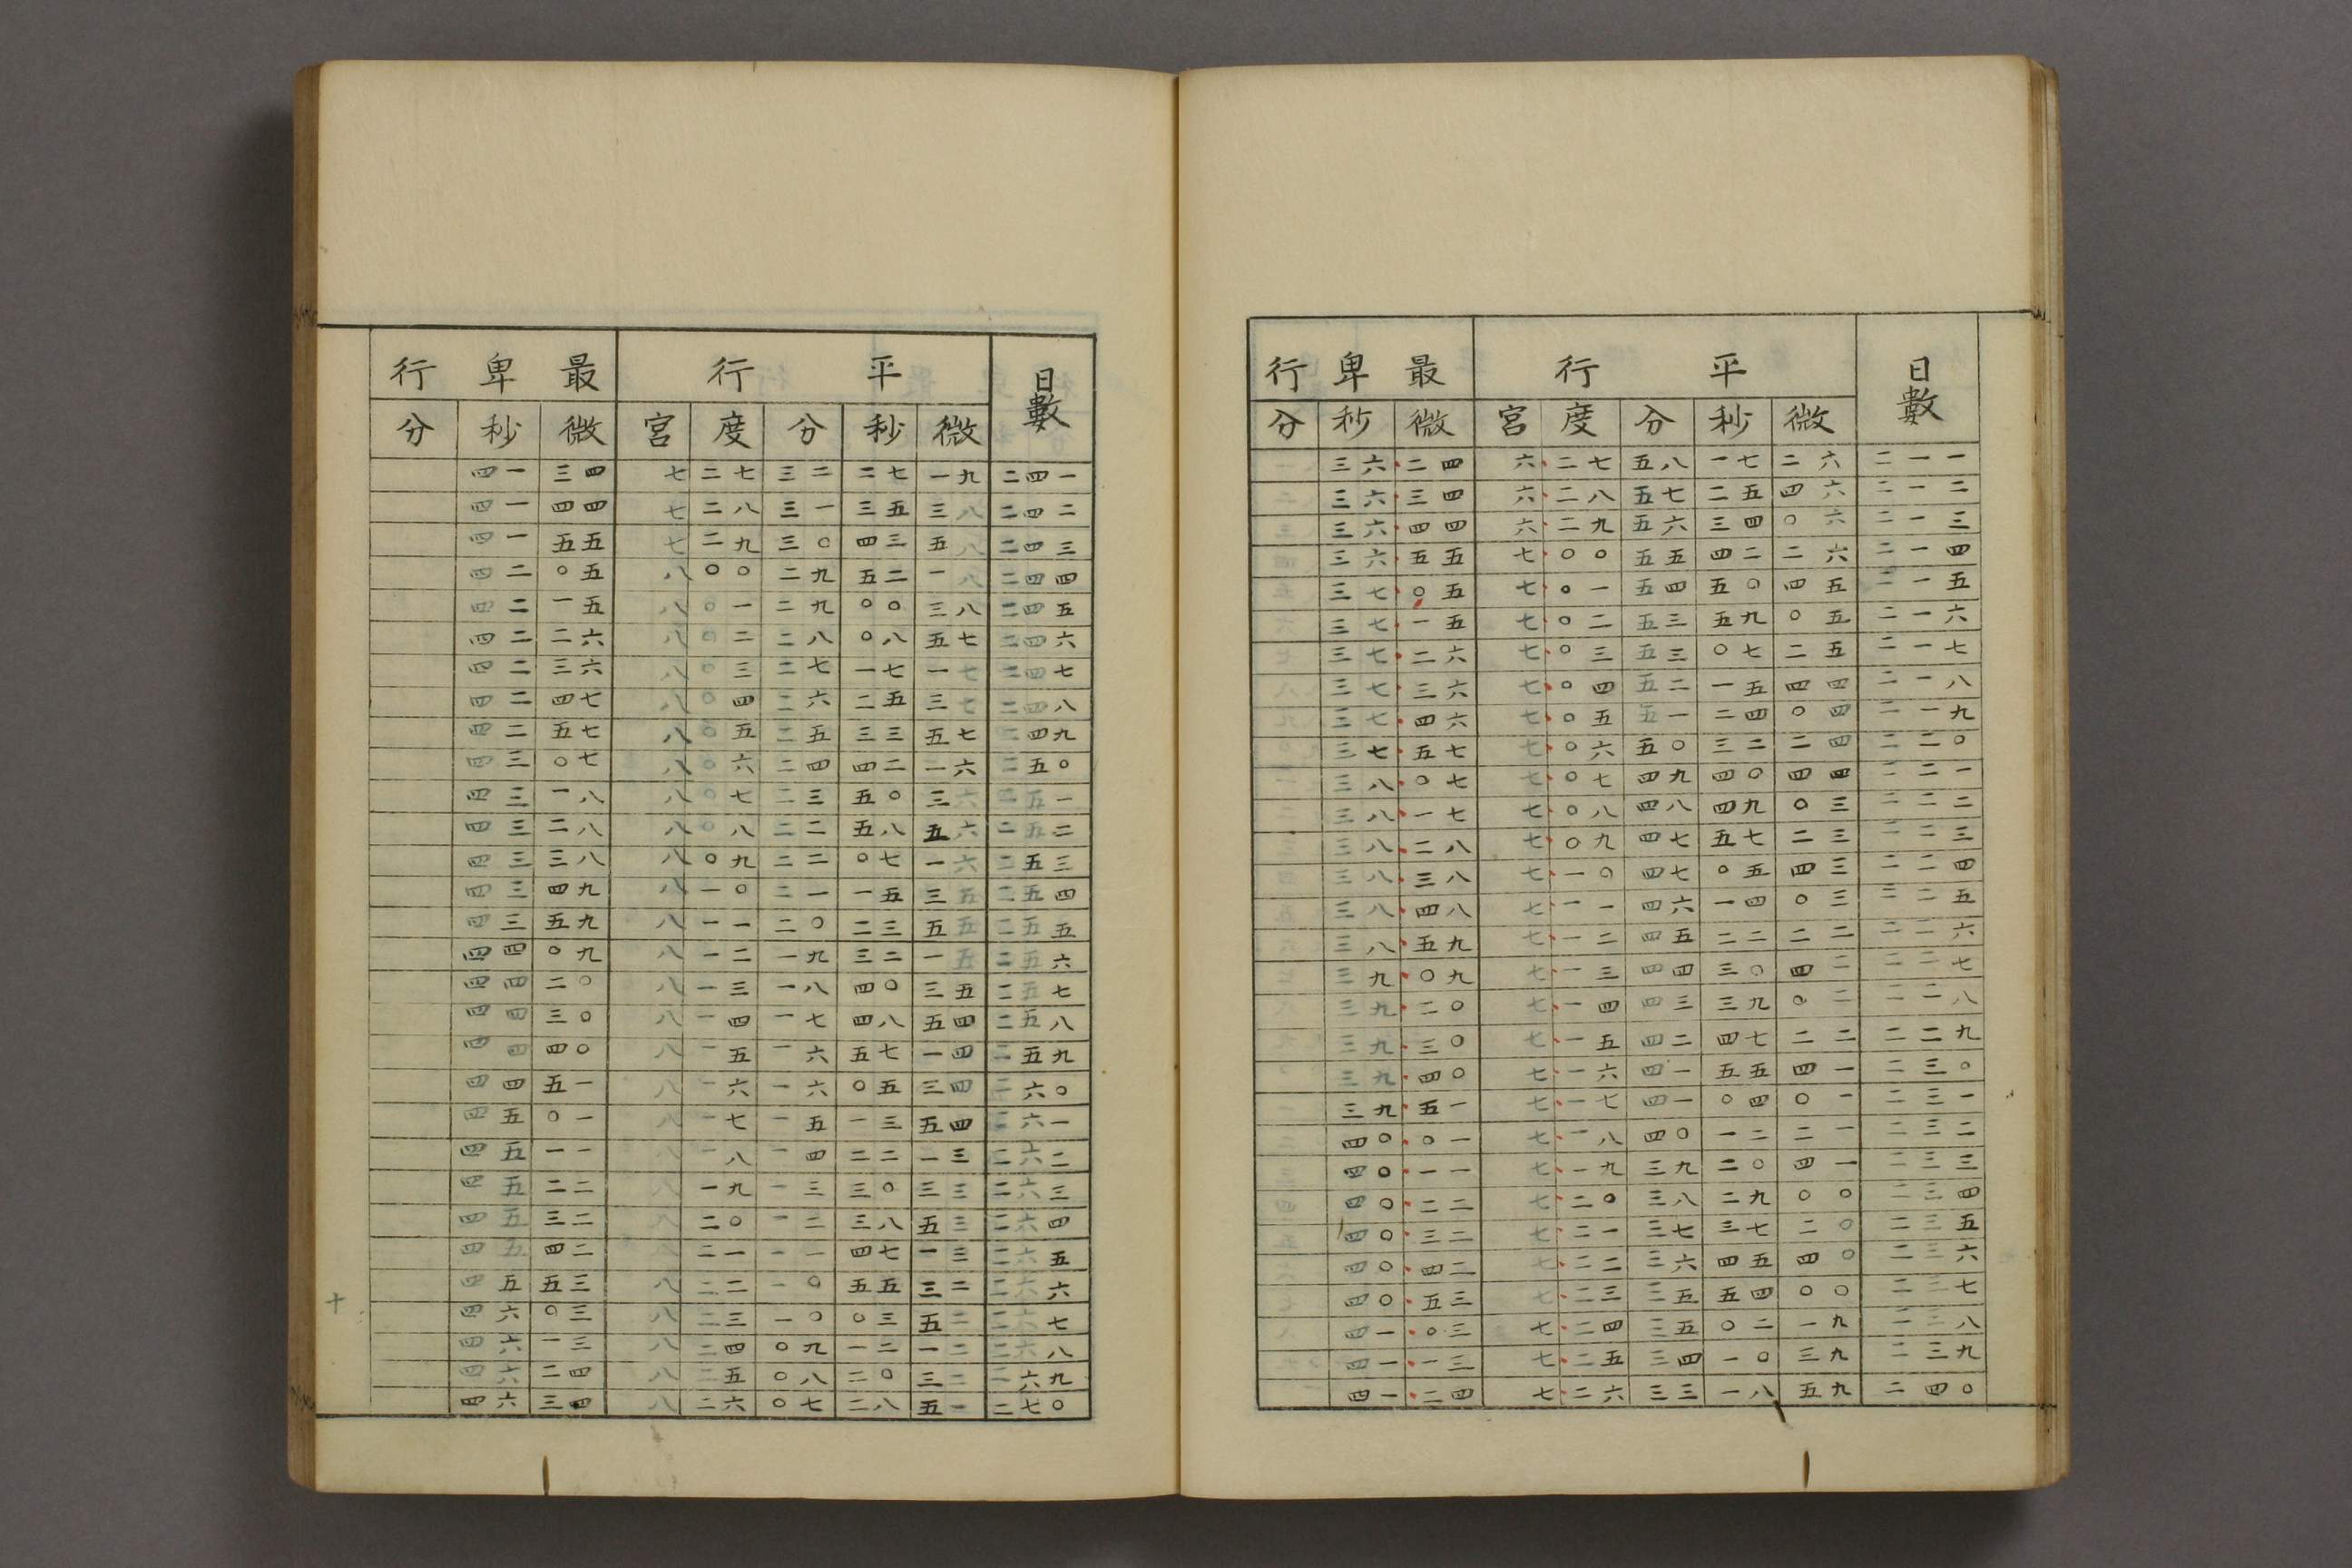 日數 平行 最卑行
微 秒 分 度 宮 微 秒 分
三六 二四 六 二七 五八 一七 二六 二一一
三六 三四 六 二八 五七 二五 四六 二一二
三六 四四 六 二九 五六 三四 〇六 二一三
三六 五五 七 〇〇 五五 四二 二六 二一四
三七 〇五 七 〇一 五四 五〇 四五 二一五
三七 一五 七 〇二 五三 五九 〇五 二一六
三七 二六 七 〇三 五三 〇七 二五 二一七
三七 三六 七 〇四 五二 一五 四四 二一八
三七 四六 七 〇五 五一 二四 〇四 二一九
三七 五七 七 〇六 五〇 三二 二四 二二〇
三八 〇七 七 〇七 四九 四〇 四四 二二一
三八 一七 七 〇八 四八 四九 〇三 二二二
三八 二八 七 〇九 四七 五七 二三 二二三
三八 三八 七 一〇 四七 〇五 四三 二二四
三八 四八 七 一一 四六 一四 〇三 二二五
三八 五九 七 一二 四五 二二 二二 二二六
三九 〇九 七 一三 四四 三〇 四二 二二七
三九 二〇 七 一四 四三 三九 〇二 二二八
三九 三〇 七 一五 四二 四七 二二 二二九
三九 四〇 七 一六 四一 五五 四一 二三〇
三九 五一 七 一七 四一 〇四 〇一 二三一
四〇 〇一 七 一八 四〇 一二 二一 二三二
四〇 一一 七 一九 三九 二〇 四一 二三三
四〇 二二 七 二〇 三八 二九 〇〇 二三四
四〇 三二 七 二一 三七 三七 二〇 二三五
四〇 四二 七 二二 三六 四五 四〇 二三六
四〇 五三 七 二三 三五 五四 〇〇 二三七
四一 〇三 七 二四 三五 〇二 一九 二三八
四一 一三 七 二五 三四 一〇 三九 二三九
四一 二四 七 二六 三三 一八 五九 二四〇
日數 平行 最卑行
微 秒 分 度 宮 微 秒 分
四一 三四 七 二七 三二 二七 一九 二四一
四一 四四 七 二八 三一 三五 三八 二四二
四一 五五 七 二九 三〇 四三 五八 二四三
四二 〇五 八 〇〇 二九 五二 一八 二四四
四二 一五 八 〇一 二九 〇〇 三八 二四五
四二 二六 八 〇二 二八 〇八 五七 二四六
四二 三六 八 〇三 二七 一七 一七 二四七
四二 四七 八 〇四 二六 二五 三七 二四八
四二 五七 八 〇五 二五 三三 五七 二四九
四三 〇七 八 〇六 二四 四二 一六 二五〇
四三 一八 八 〇七 二三 五〇 三六 二五一
四三 二八 八 〇八 二二 五八 五六 二五二
四三 三八 八 〇九 二二 〇七 一六 二五三
四三 四九 八 一〇 二一 一五 三五 二五四
四三 五九 八 一一 二〇 二三 五五 二五五
四四 〇九 八 一二 一九 三二 一五 二五六
四四 二〇 八 一三 一八 四〇 三五 二五七
四四 三〇 八 一四 一七 四八 五四 二五八
四四 四〇 八 一五 一六 五七 一四 二五九
四四 五一 八 一六 一六 〇五 三四 二六〇
四五 〇一 八 一七 一五 一三 五四 二六一
四五 一一 八 一八 一四 二二 一三 二六二
四五 二二 八 一九 一三 三〇 三三 二六三
四五 三二 八 二〇 一二 三八 五三 二六四
四五 四二 八 二一 一一 四七 一三 二六五
四五 五三 八 二二 一〇 五五 三二 二六六
四六 〇三 八 二三 一〇 〇三 五二 二六七
四六 一三 八 二四 〇九 一二 一二 二六八
四六 二四 八 二五 〇八 二〇 三二 二六九
四六 三四 八 二六 〇七 二八 五一 二七〇
十